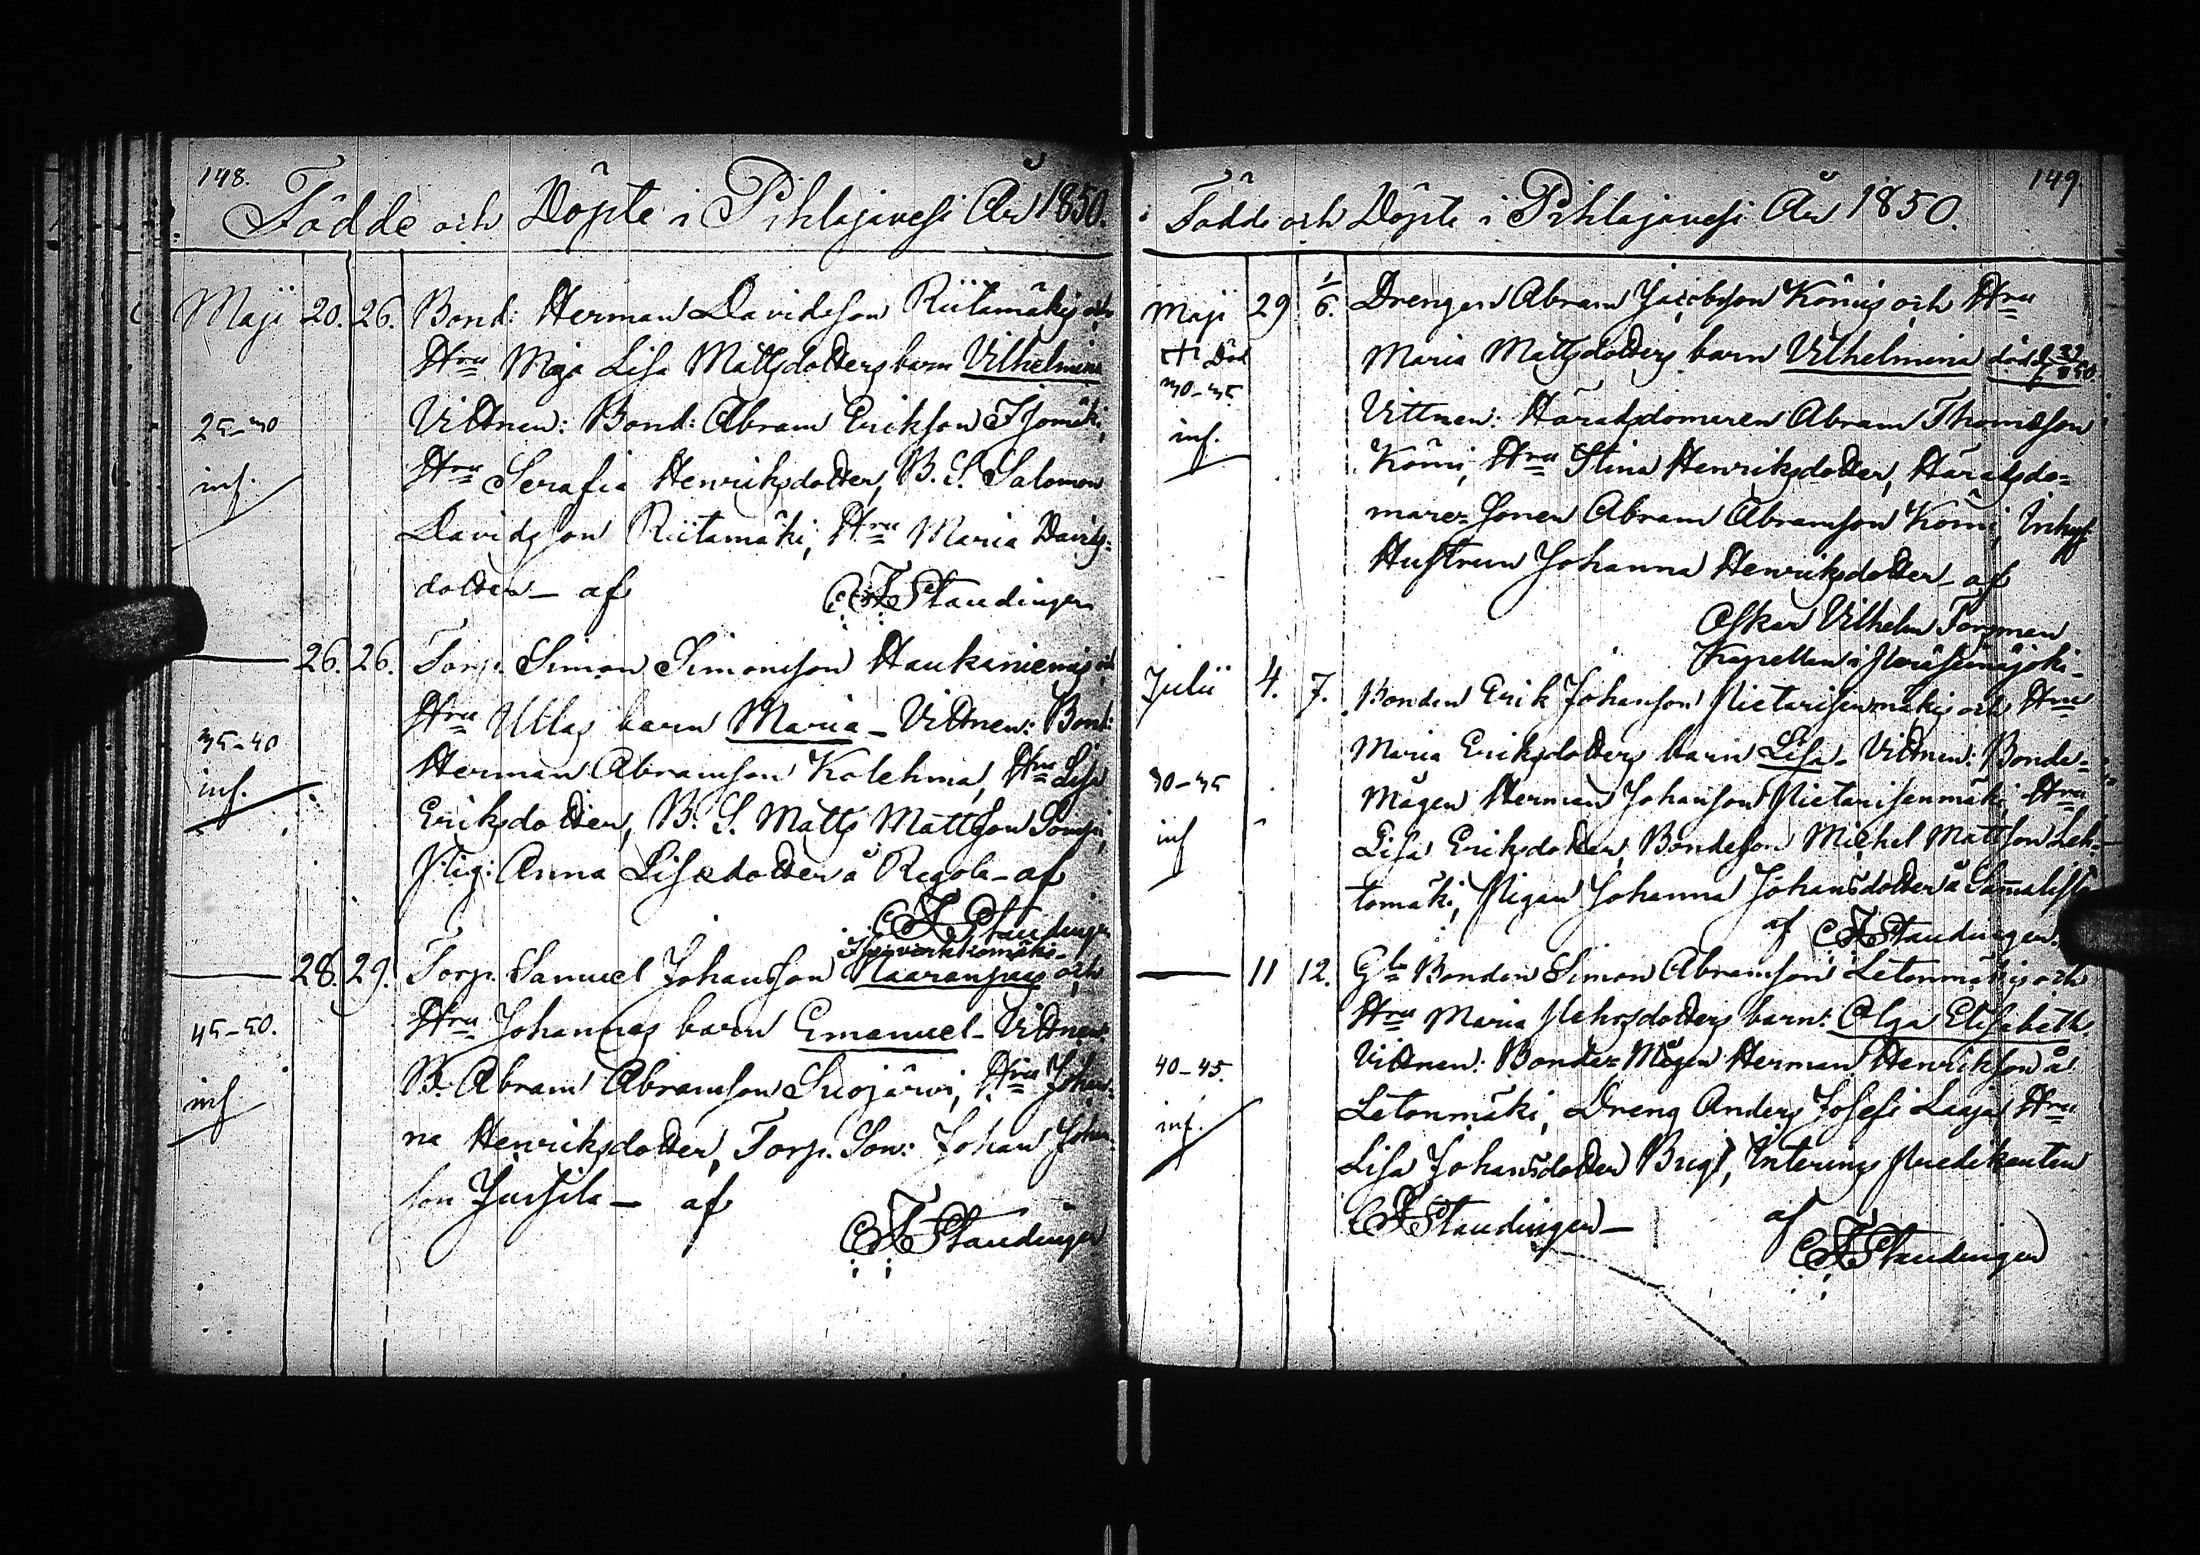 148.
Födde och Döpte i Pihlajavesi År 1850.
Maji 20. 26. Bond: Herman Davidsson Riitamäkis och
Hru Maja Lisa Mattsdotters barn Vilhelmina
25-30 Vittnen: Bond: Abram Erikson
inf. Hru Serafia Henriksdotter, B. S. Salomon
Davidsson Riitamäki, Hru Maria Davids-
dotter – af CFStaudinger
— 26. 26. Torp. Simon Simonsson Haukiniemis och
Hru Ullas barn Maria – Vittnen: Bond:
35-40 Herman Abramson Kolehma, Hru Lisa
inf. Eriksdotter, B. S. Matts Mattson
Pig: Anna Lisadotter å Regola – af
CFStaudinger
— 28. 29. Torp. Samuel Johansson Naaranjas och
Hru Johannas barn Emanuel – Vittnen:
45-50. B. Abram Abramson Suojärvi, Hru Johan-
inf na Henriksdotter, Torp. Son: Johan Johan-
son Jussila – af
CFStaudinger
149.
Födde och Döpte i Pihlajavesi År 1850.
Maji 29 1/6. Drengen Abram Jacobsson Kömis och Hru
Död Maria Mattsdotters barn Vilhelmina död
30-35. Vittnen: Häradsdomaren Abram Thomasson
inf. Kömi, Hru Stina Henriksdotter, Häradsdo-
mare-Sonen Abram Abramson Kömi,
Hustrun Johanna Henriksdotter – af
Oskar Vilhelm Forsman
Kapellan i Peräseinäjoki –
Julii 4. 7. Bonden Erik Johanson Pietarisenmäkis och Hru
Maria Eriksdotters barn Lisa – Vittnen: Bonde-
30-35 Mågen Herman Johanson Pietarisenmäki, Hru
inf Lisa Eriksdotter, Bondeson Michel Mattson Leh-
tomäki, Pigan Johanna Johansdotter å
af CFStaudinger.
— 11 12. Bonden Simon Abramson Letonmäkis och
Hru Maria Pehrsdotters barn: Olga Elisabeth
40-45. Vittnen: Bonde-Mågen Herman Henrikson å
inf. Letonmäki, Dreng Anders Josefs Laaja, Hru
Lisa Johansdotter Brigt, Interims Predikanten
CFStaudinger –
af CFStaudinger